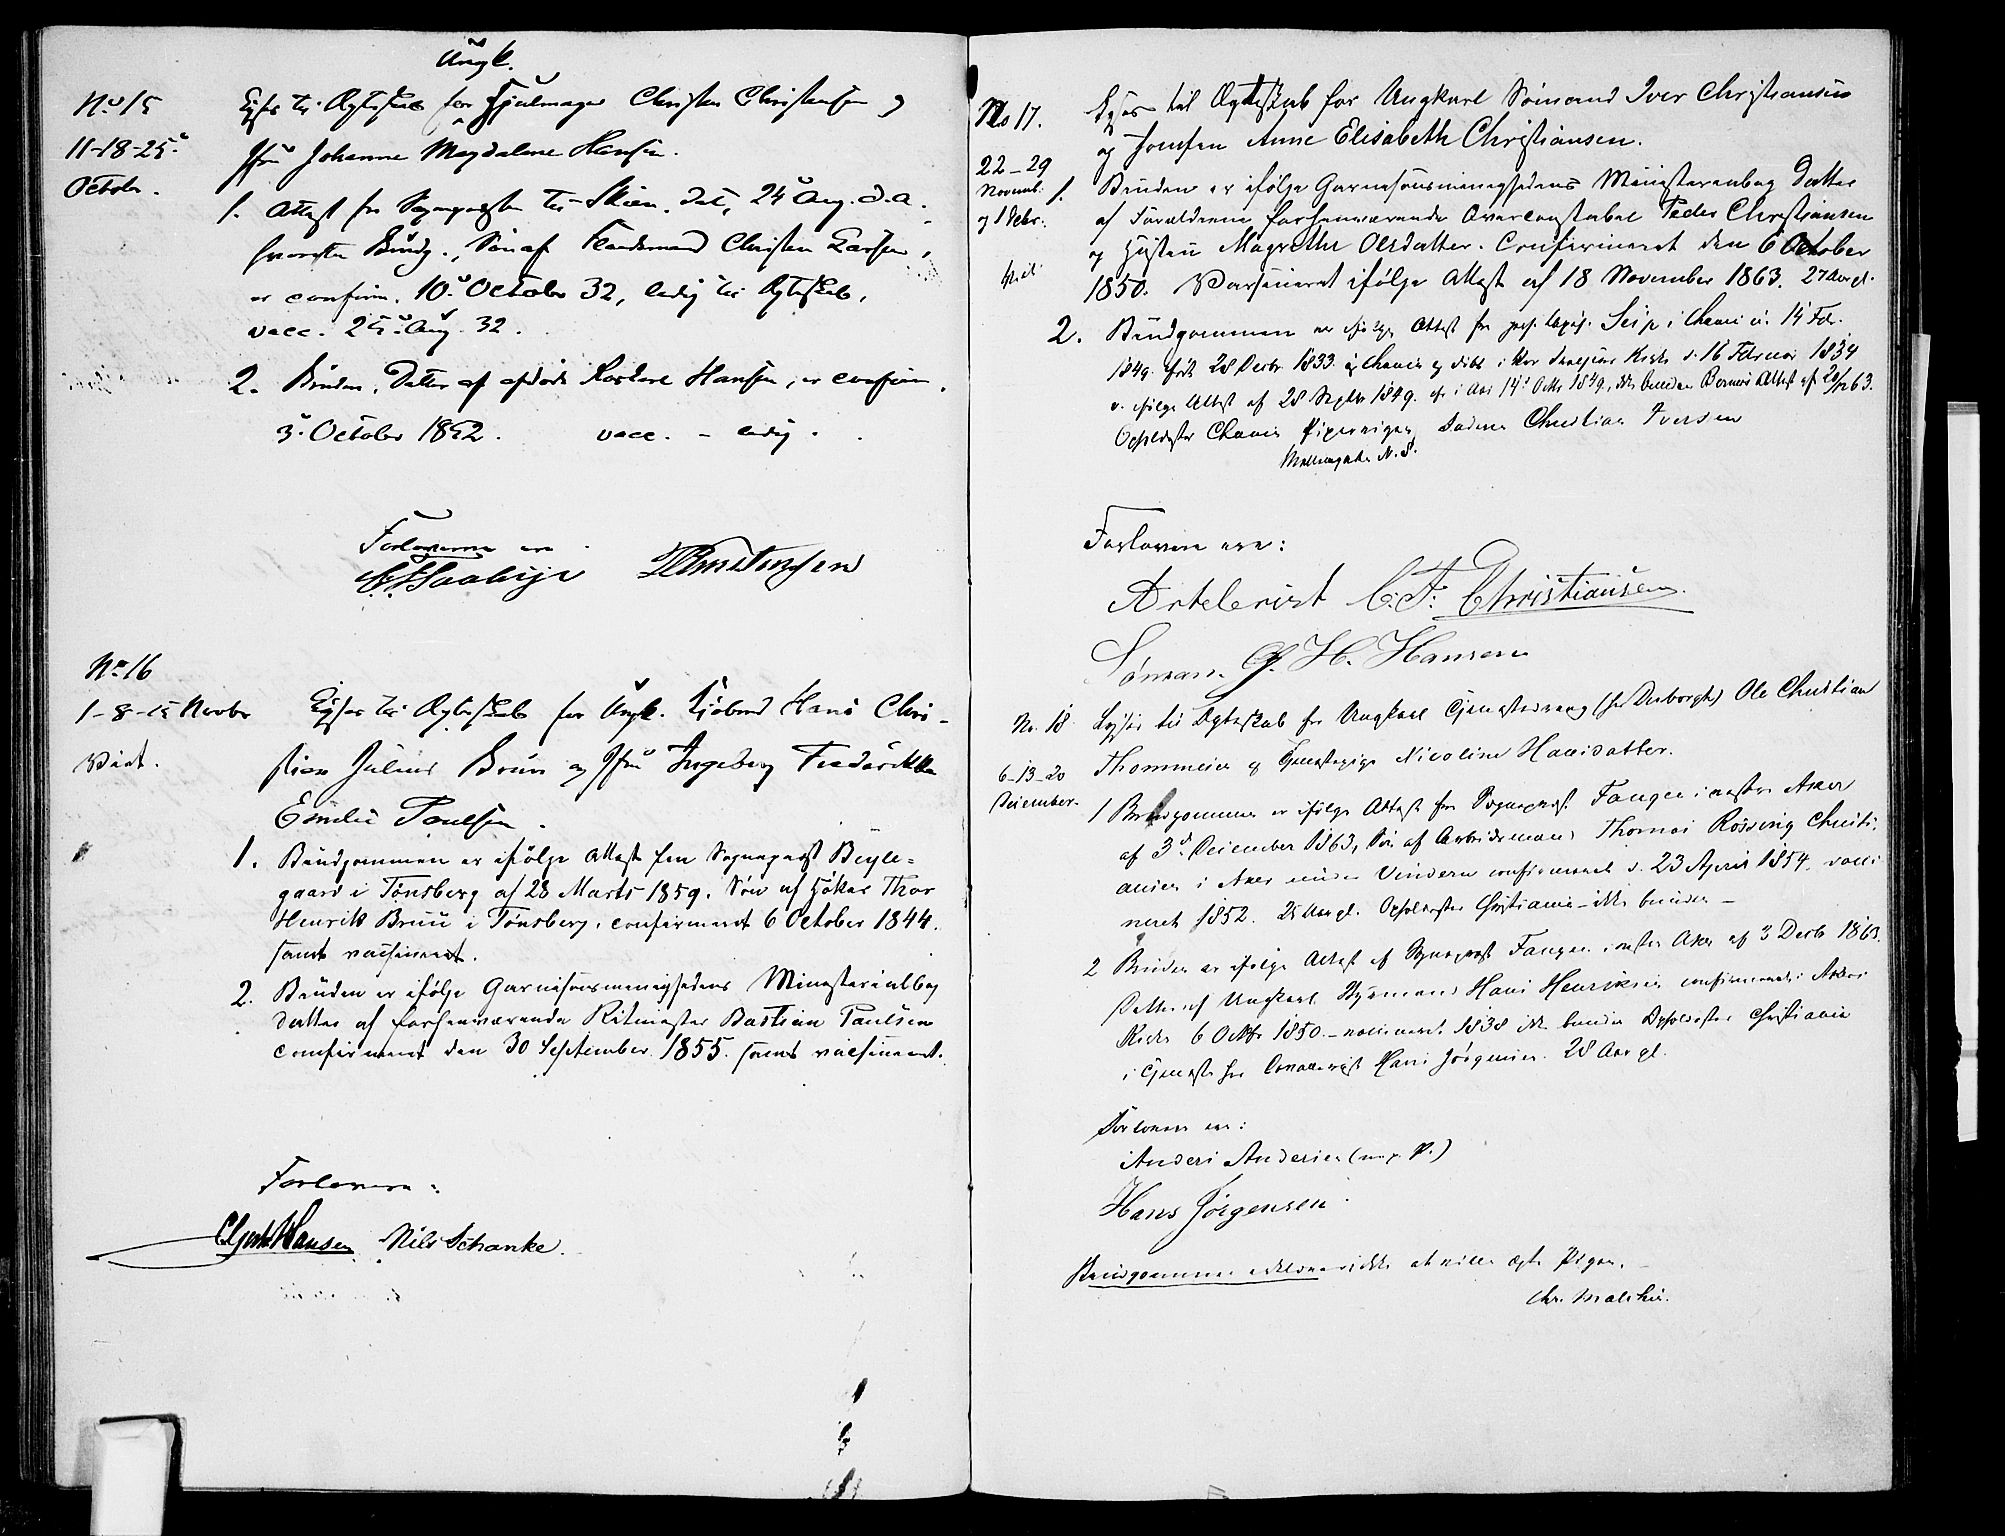 Ungk.
No 15
Lyses til Ægteskab for Hjulmager Christen Christensen og
11-18-25.
Jfru Johanne Magdalene Hansen.
October.
1. Attest fra Sognepresten til Skien, dat. 24 Aug. d.A.
Søn af Christen Larsen,
er confirm. 10. October 32, ledig til Ægteskab,
vacc. 25. Aug. 32.
2. Bruden, Datter af afdøde Hansen, er confirm.
3. October 1852. vacc. - ledig.
Forloverne ere
Christensen
No 16
1-8-15 Novbr
Lyses til Ægteskab for Ungk. Kjøbmd Hans Chri-
Viet.
stian Julius Bruun og Jfru Ingeborg Frederikke
Emilie Paulsen.
1. Brudgommen er ifølge Attest fra Sogneprest Beyle-
gaard i Tønsberg af 28 Marts 1859. Søn af Høker Thor
Henrik Bruun i Tønsberg, confirmeret 6 October 1844.
samt vaksineret.
2. Bruden er ifølge Garnisonsmenighedens Ministerialbog
Datter af forhenværende Ritmester Bastian Paulsen
confirmeret den 30 September 1855. samt vaksineret.
Forlovere:
Hansen Nils Schanke.
No 17.
Lyses til Ægteskab for Ungkarl Sømand Iver Christiansen
og Jomfru Anne Elisabeth Christiansen.
22-29
Novemb.
og 1 Debr.
Viet
1. Bruden er ifølge Garnisonsmenighedens Ministerialbog Datter
af Forældrene forhenværende Overconstabel Peder Christiansen
og Hustru Magrethe Olsdatter. Confirmeret den 6 October
1850. Vaksineret ifølge Attest af 18 November 1863. 27 Aar gl.
2. Brudgommen er ifølge Attest fra Seip i Chania d. 14 Febr.
1849 født 28 Decbr 1833 i Chania og døbt i Vor Frelsers Kirke d. 16 Februar 1834
v. ifølge Attest af 28 Septbr 1849. cf. i Aas 14 Octbr 1849, ikke bunden Attest af
Opholdster Chania Pipervigen, Faderen Christian Iversen
Møllergaden N. 8.
Forlovere ere:
Artelerist C. F. Christiansen.
Sømann G. H. Hansen
No. 18
Lyses til Ægteskab for Ungkarl Tjenestedreng Ole Christian
Thommesen og Tjenestepige Nicoline Hansdatter.
6-13-20
December.
1 Brudgommen er ifølge Attest fra Sogneprest Fangen i vestre Aker
af 3 December 1863, Søn af Arbeidsmand Thomas Røssing Christi-
ansen i Aker under Vindern confirmeret d. 23 April 1854, vacci-
neret 1852. 25 Aar gl. Opholdster Christiania - ikke bunden -
2 Bruden er ifølge Attest af Sogneprest Fangen i vestre Aker af 3 Decbr 1863.
Datter af Ungkarl Huusmand Hans Henriksen confirmeret i Akers
Kirke 6 Octbr 1850 - vaccineret 1838 ikke bunden Opholdster Christiania
i Tjeneste hos Hans Jørgensen. 28 Aar gl.
Forlovere ere:
Anders Andersen (m. p. P.)
Hans Jørgensen.
Brudgommen ikke at ville ægte Pigen.